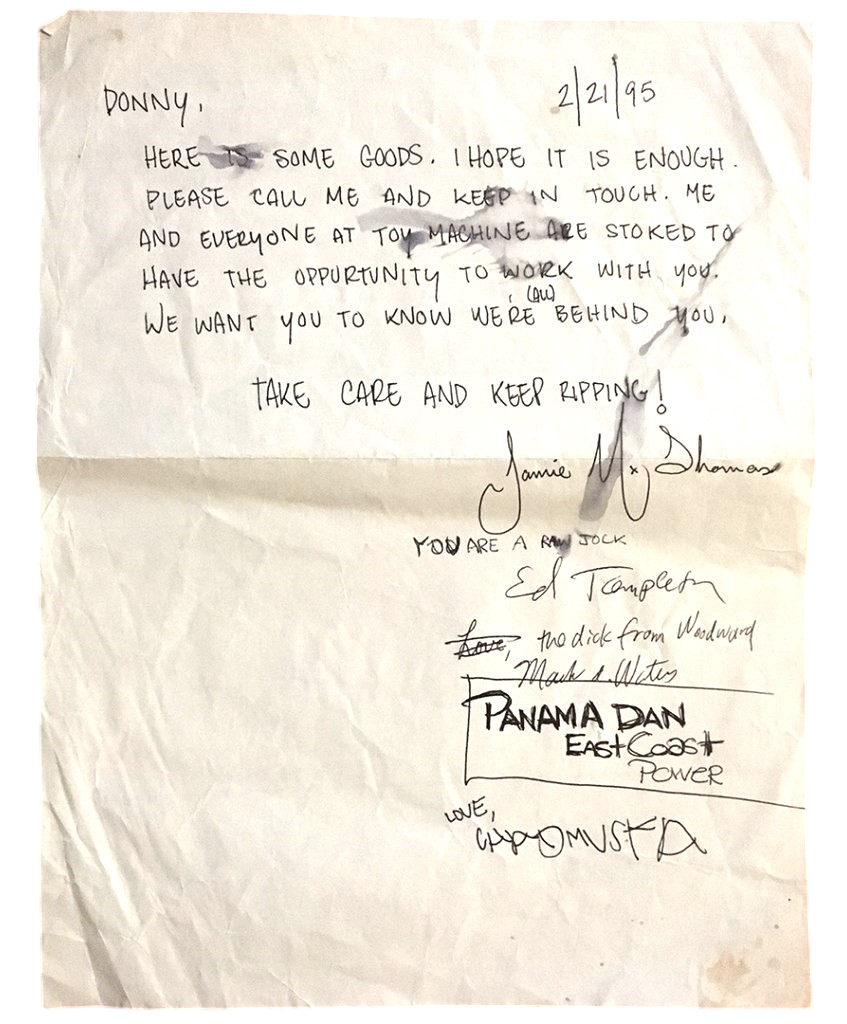 DONNY,
2/21/95
HERE IS SOME GOODS. I HOPE IT IS ENOUGH.
PLEASE CALL ME AND KEEP IN TOUCH. ME
AND EVERYONE AT TOY MACHINE ARE STOKED TO
HAVE THE OPPURTUNITY TO WORK WITH YOU.
(ALL)
WE WANT YOU TO KNOW WE'RE BEHIND YOU.
TAKE CARE AND KEEP RIPPING!
Jamie M. Thomas
YOU ARE A RAW JOCK
Ed Templeton
Love, the dick from Woodward
PANAMA DAN
EAST COAST
POWER
LOVE,